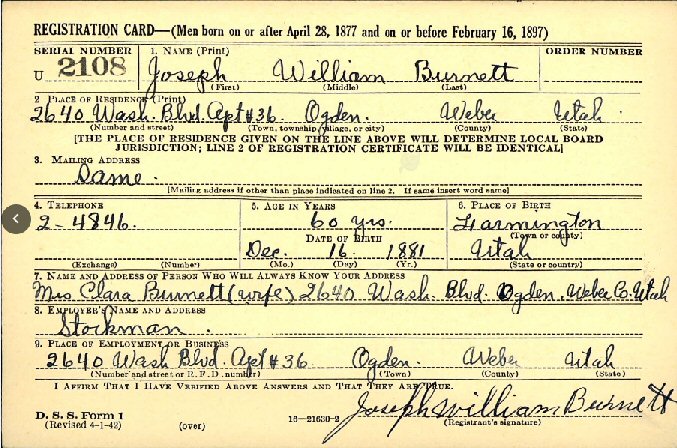 REGISTRATION CARD—(Men born on or after April 28, 1877 and on or before February 16, 1897)
SERIAL NUMBER 1. NAME (Print) ORDER NUMBER
U 2108 Joseph William Burnett
(First) (Middle) (Last)
2 PLACE OF RESIDENCE (Print)
2640 Wash. Blvd. Apt #36 Ogden. Weber Utah
(Number and street) (Town, township, village, or city) (County) (State)
[THE PLACE OF RESIDENCE GIVEN ON THE LINE ABOVE WILL DETERMINE LOCAL BOARD
JURISDICTION; LINE 2 OF REGISTRATION CERTIFICATE WILL BE IDENTICAL]
3. MAILING ADDRESS
Same.
[Mailing address if other than place indicated on line 2. If same insert word same]
4. TELEPHONE 5. AGE IN YEARS 6. PLACE OF BIRTH
2-4846. 60 yrs. Farmington
DATE OF BIRTH (Town or county)
Dec. 16 1881 Utah
(Exchange) (Number) (Mo.) (Day) (Yr.) (State or country)
7. NAME AND ADDRESS OF PERSON WHO WILL ALWAYS KNOW YOUR ADDRESS
Mrs Clara Burnett (wife) 2640 Wash. Blvd. Ogden, Weber Co. Utah
8. EMPLOYER'S NAME AND ADDRESS
Stockman.
9. PLACE OF EMPLOYMENT OR BUSINESS
2640 Wash Blvd. Apt #36 Ogden. Weber Utah
(Number and street or R. F. D. number) (Town) (County) (State)
I AFFIRM THAT I HAVE VERIFIED ABOVE ANSWERS AND THAT THEY ARE TRUE.
Joseph William Burnett
D. S. S. Form 1 16—21630-2 (Registrant's signature)
(Revised 4-1-42) (over)